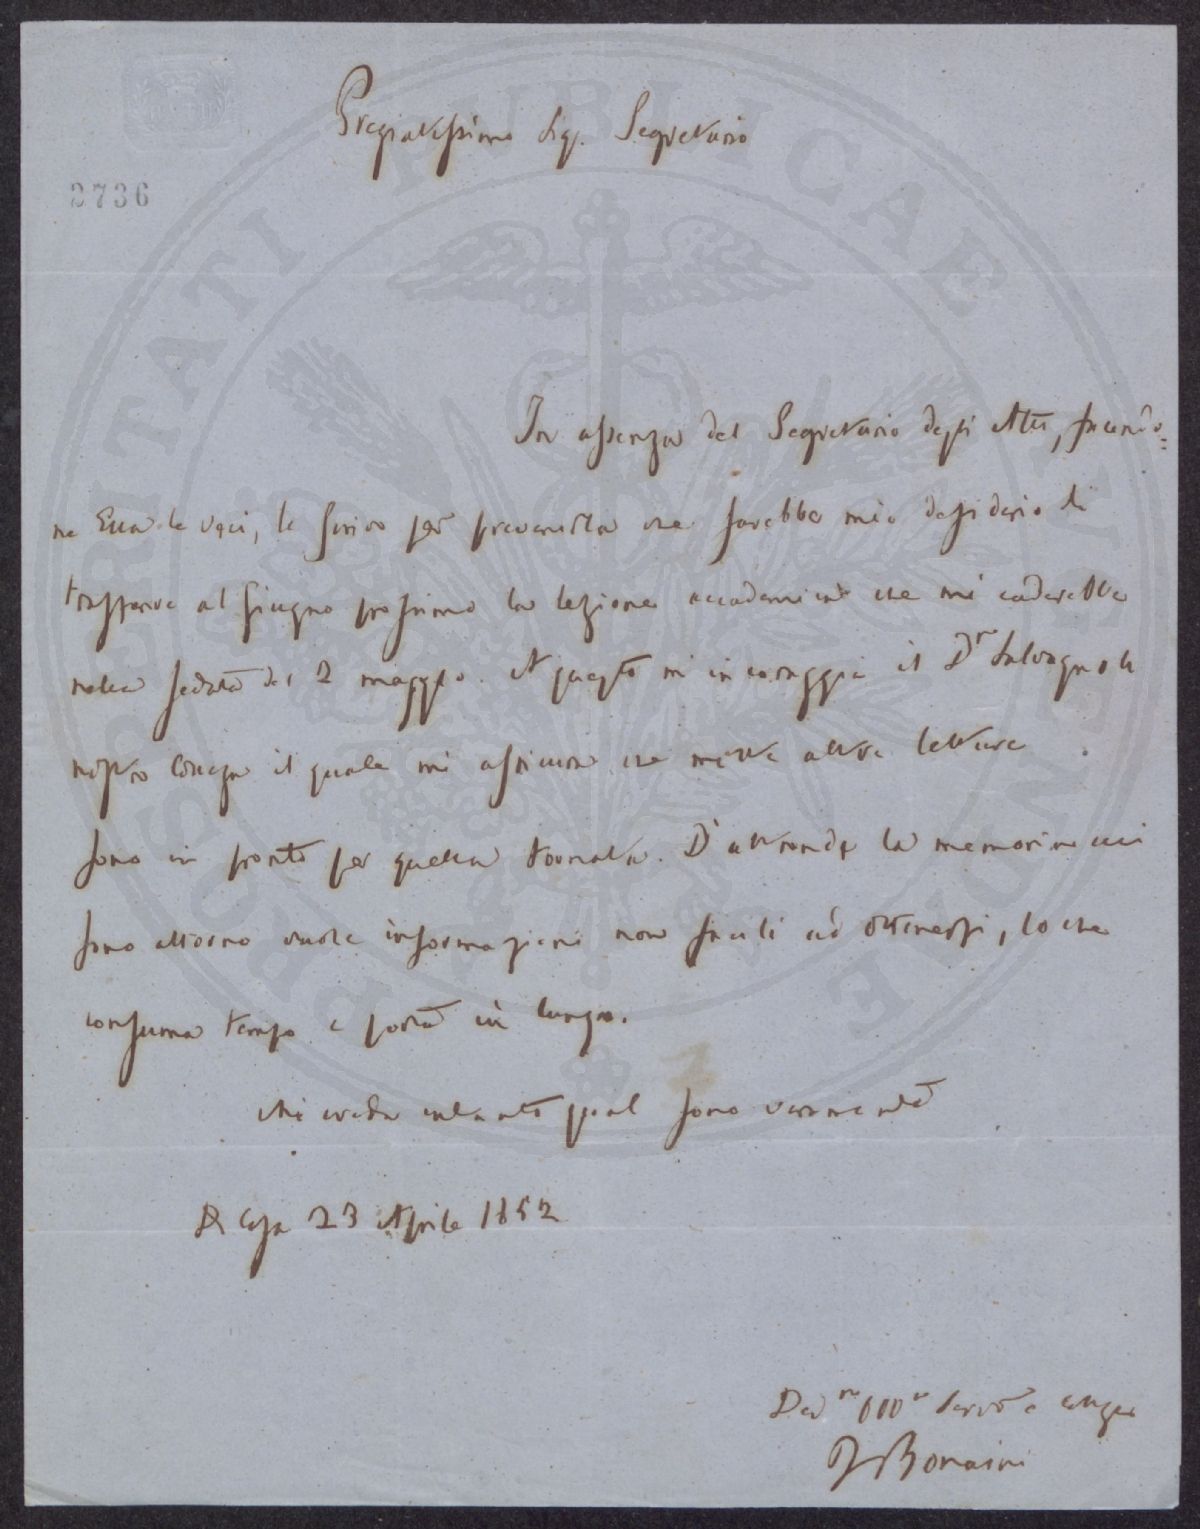 Pregiatissimo Sig. Segretario
2736
In assenza del Segretario degli Atti, facendo=
ne Ella le veci, le scrivo per prevenirla che sarebbe mio desiderio di
trasferire al Giugno prossimo la lezione accademica che mi caderebbe
nella seduta del 2 maggio. A questo mi incoraggia il D.r Salvagnoli
nostro Collega il quale mi assicura che molte altre letture
sono in pronto per quella tornata. D'altronde la memoria cui
sono attorno vuole informazioni non facili ad ottenersi, lo che
consuma tempo e porta in lungo.
Mi creda intanto qual sono veramente
Di Casa 23 Aprile 1852
Dev.mo Servo e collega
F Bonaini
PROSPERITATI PUBLICAE AUGENDAE